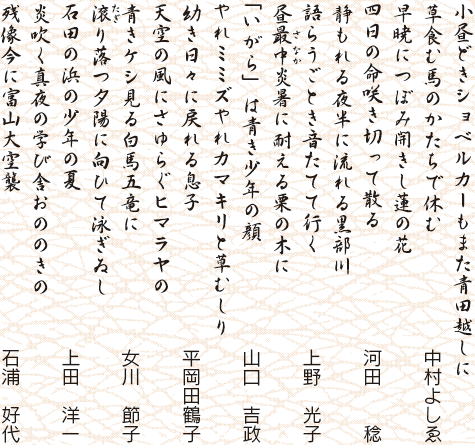 小昼どきショベルカーもまた青田越しに
草食む馬のかたちで休む
中村よしゑ
早暁につぼみ開きし蓮の花
四日の命咲き切って散る
河田 稔
静もれる夜半に流れる黒部川
語らうごとき音たてて行く
上野 光子
昼最中炎暑に耐える栗の木に
さなか
「いがら」は青き少年の顔
山口 吉政
やれミミズやれカマキリと草むしり
幼き日々に戻れる息子
平岡田鶴子
天空の風にさゆらぐヒマラヤの
青きケシ見る白馬五竜に
女川 節子
滾り落つ夕陽に向ひて泳ぎゐし
たぎ
石田の浜の少年の夏
上田 洋一
炎吹く真夜の学び舎おののきの
残像今に富山大空襲
石浦 好代